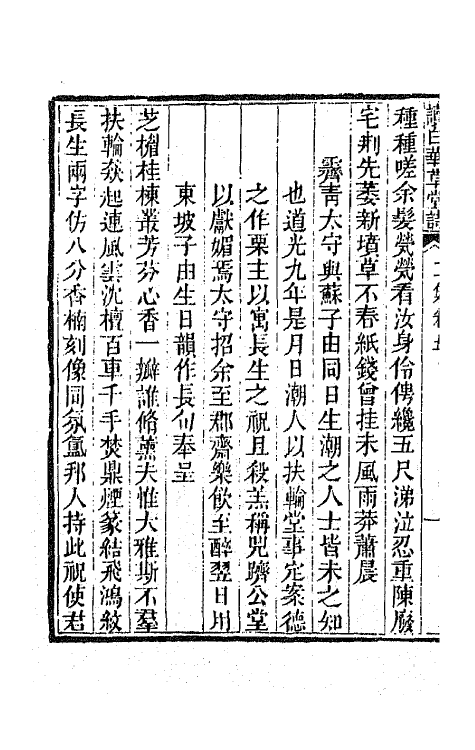 種種嗟余髮煢煢看汝身伶俜纔五尺涕泣忍重陳廢
宅荆先萎新墳草不春紙錢曾挂未風雨莽蕭晨
霽青太守與蘇子由同日生潮之人士皆未之知
也道光九年是月日潮人以扶輪堂事定案德
之作栗主以寓長生之祝且殺羔稱兕躋公堂
以獻媚焉太守招余至郡齋樂飲至醉翌日用
東坡子由生日韻作長句奉呈
芝楣桂棟叢芳芬心香一瓣誰脩薰夫惟大雅斯不羣
扶輪猋起連風雲沈檀百車千手焚鼎煙篆結飛鴻紋
長生兩字仿八分香楠刻像同氛氳邦人持此祝使君